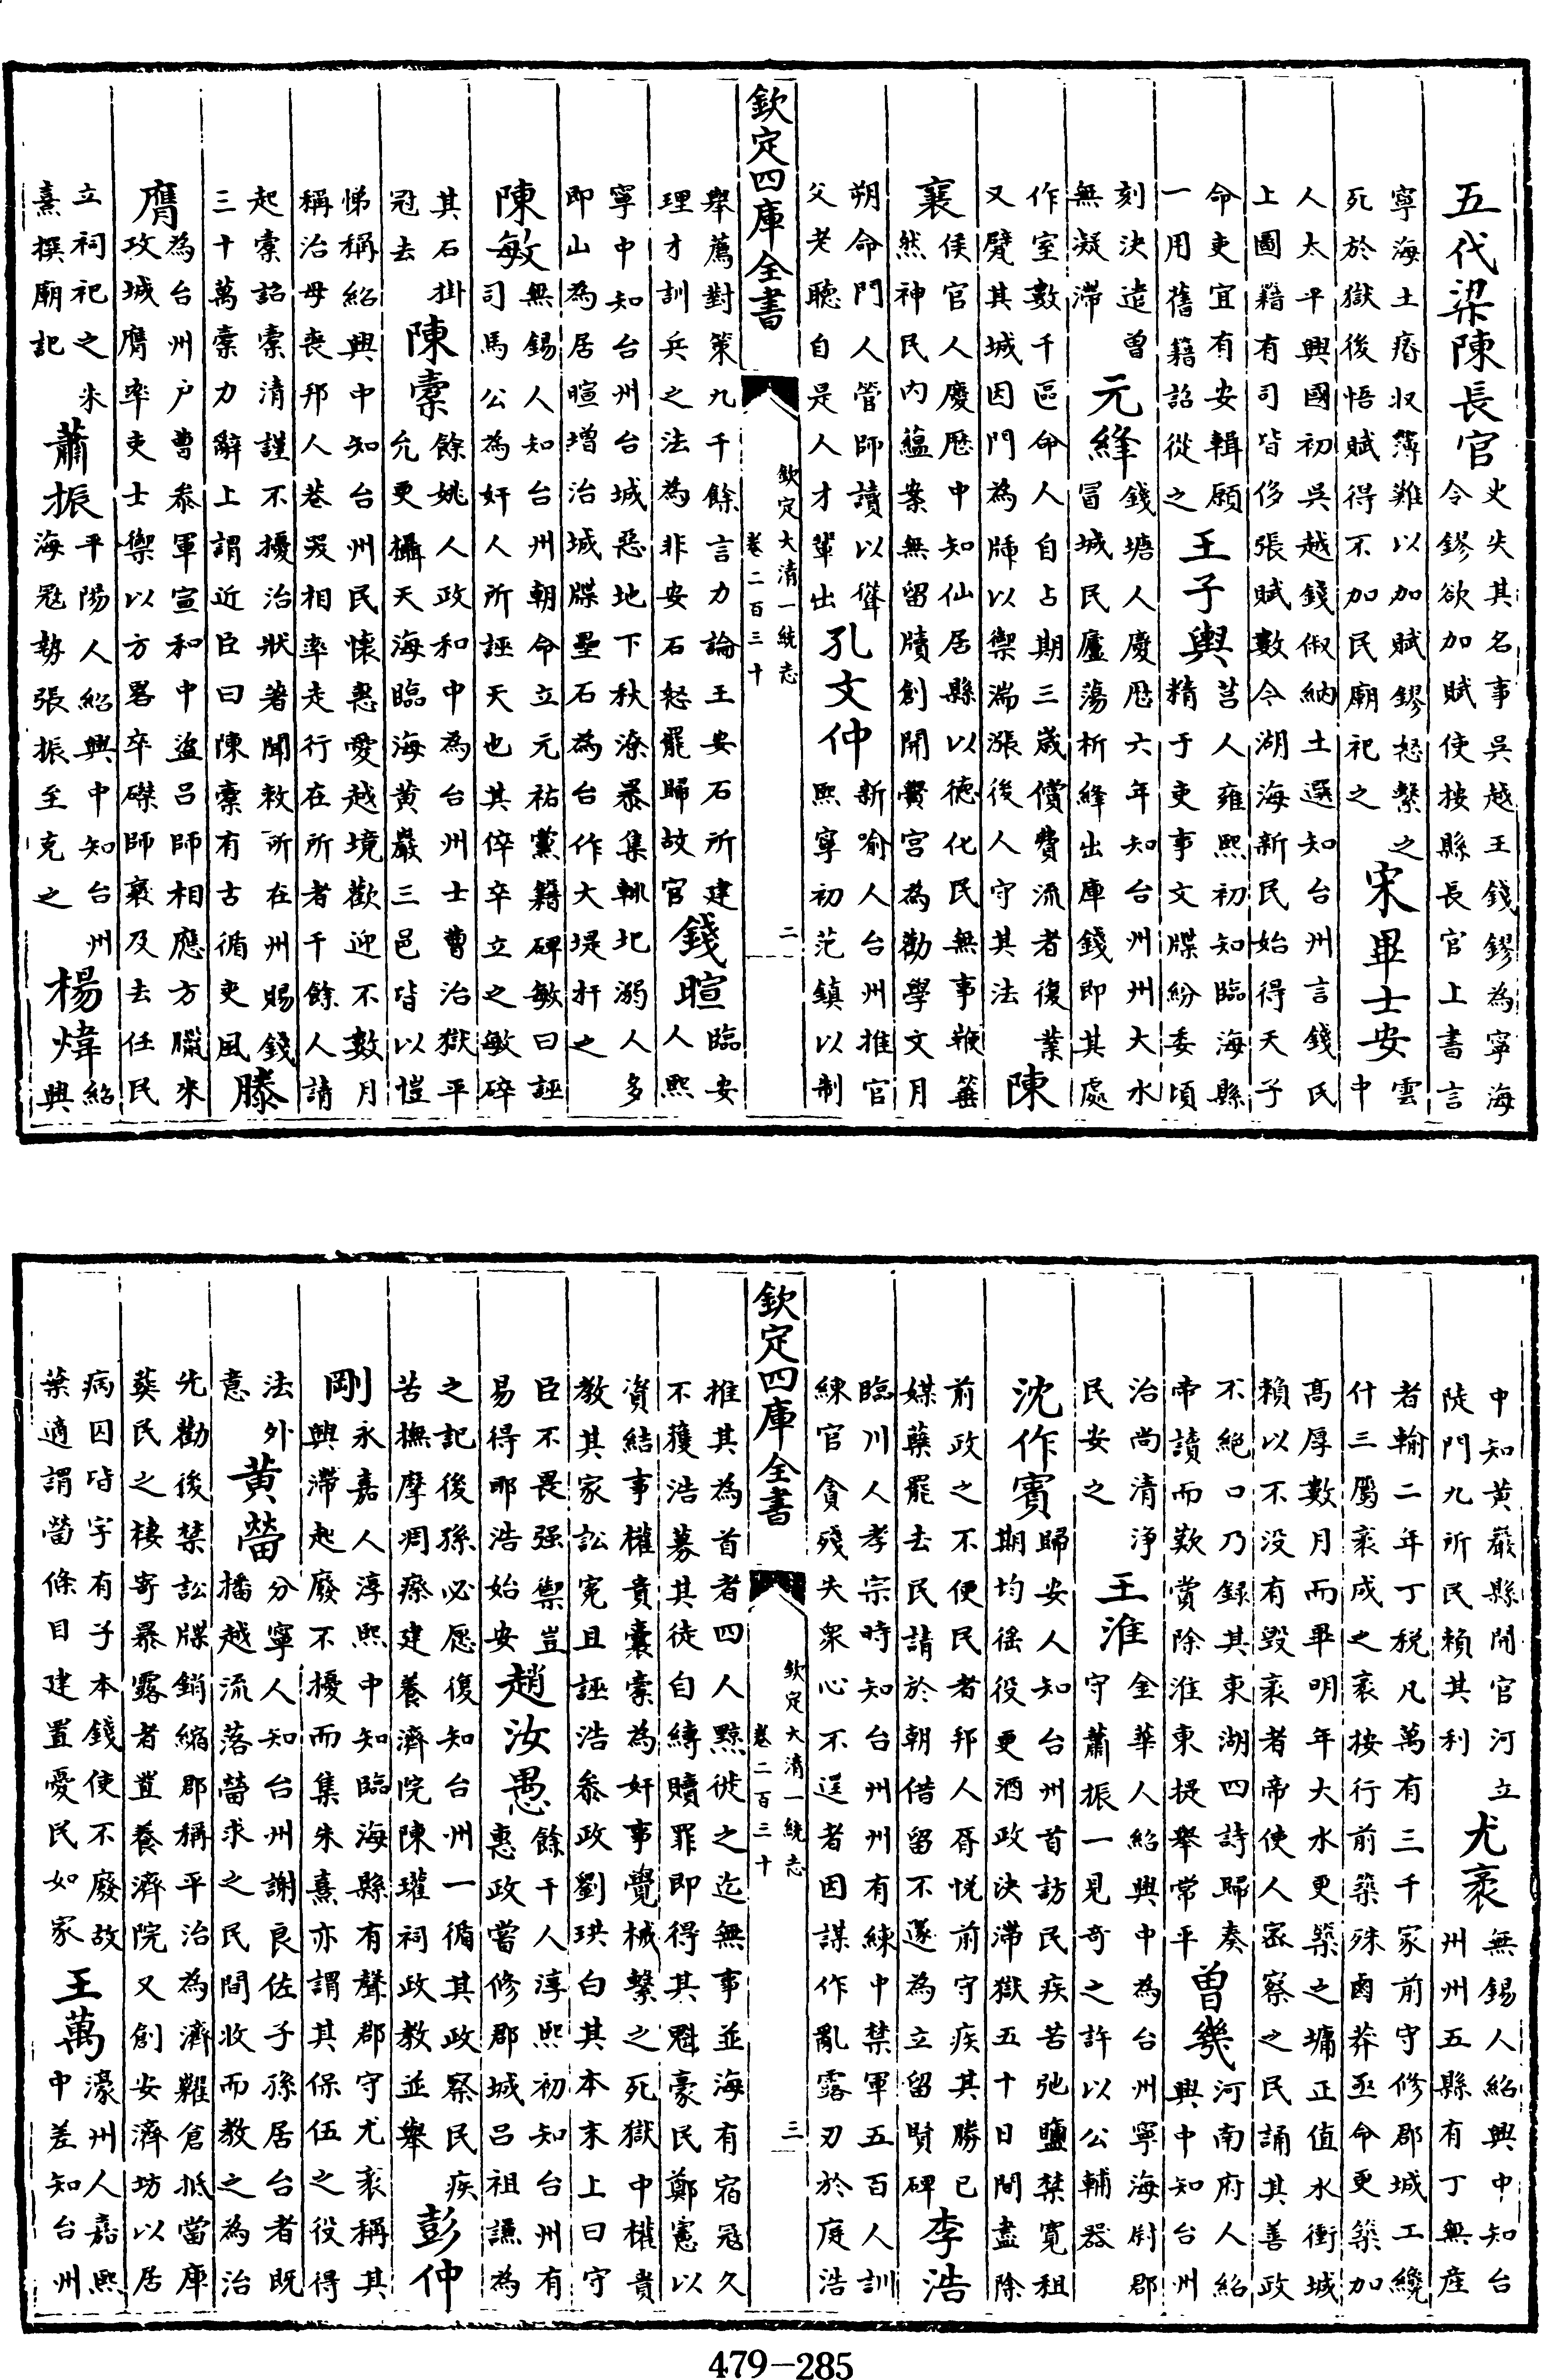 五代梁陳長官
史失其名事吳越王錢鏐為寧海
令鏐欲加賦使按縣長官上書言
寧海土瘠収簿難以加賦鏐怒繫之
死於獄後悟賦得不加民廟祀之
宋畢士安
雲
中
人太平興國初吳越錢俶納土選知台州言錢氏
上圖籍有司皆侈張賦數今湖海新民始得天子
命吏宜有安輯願
一用舊籍詔從之
王子輿
莒人雍熙初知臨海縣
精于吏事文牒紛委頃
刻決遣曽
無凝滯
元絳
錢塘人慶厯六年知台州州大水
冒城民廬蕩析絳出庫錢即其處
作室數千區命人自占期三歲償費流者復業
又甓其城因門為牐以禦湍漲後人守其法
陳
襄
侯官人慶厯中知仙居縣以德化民無事鞭箠
然神民内蘊案無留牘創開黌宫為勸學文月
朔命門人管師讀以聳
父老聽自是人才輩出
孔文仲
新喻人台州推官
熙寧初范鎮以制
欽定四庫全書
欽定大清一統志
卷二百三十
二
舉薦對策九千餘言力論王安石所建
理才訓兵之法為非安石怒罷歸故官
錢暄
臨安
人熙
寧中知台州台城惡地下秋潦暴集輙圮溺人多
即山為居暄増治城牒壘石為台作大堤扞之
陳敏
無錫人知台州朝命立元祐黨籍碑敏曰誣
司馬公為奸人所誣天也其倅卒立之敏碎
其石掛
冠去
陳槖
餘姚人政和中為台州士曹治獄平
允更攝天海臨海黄巖三邑皆以愷
悌稱紹興中知台州民懷惠愛越境歡迎不數月
稱治母喪邦人巷哭相率走行在所者千餘人請
起槖詔槖清謹不擾治狀著聞敕所在州賜錢
三十萬槖力辭上謂近臣曰陳槖有古循吏風
滕
膺
為台州户曹叅軍宣和中盗吕師相應方臘來
攻城膺率吏士禦以方畧卒磔師襄及去任民
立祠祀之朱
熹撰廟記
蕭振
平陽人紹興中知台州
海冦勢張振至克之
楊煒
紹
興
中知黄巖縣開官河立
陡門九所民賴其利
尤袤
無錫人紹興中知台
州州五縣有丁無産
者輸二年丁税凡萬有三千家前守修郡城工纔
什三屬袤成之袤按行前築殊鹵莽亟命更築加
髙厚數月而畢明年大水更築之墉正值水衝城
賴以不没有毁袤者帝使人宻察之民誦其善政
不絶口乃録其東湖四詩歸奏
帝讀而歎賞除淮東提舉常平
曽幾
河南府人紹
興中知台州
治尚清浄
民安之
王淮
金華人紹興中為台州寧海尉郡
守蕭振一見奇之許以公輔器
沈作賓
歸安人知台州首訪民疾苦弛鹽禁寛租
期均徭役更酒政決滯獄五十日間盡除
前政之不便民者邦人胥悦前守疾其勝已
媒蘖罷去民請於朝借留不遂為立留賢碑
李浩
臨川人孝宗時知台州州有練中禁軍五百人訓
練官貪殘失衆心不逞者因謀作亂露刃於庭浩
欽定四庫全書
欽定大清一統志
卷二百三十
三
推其為首者四人黥徙之迄無事並海有宿冦久
不獲浩募其徒自縛贖罪即得其魁豪民鄭憲以
資結事權貴囊槖為奸事覺械繫之死獄中權貴
教其家訟寃且誣浩叅政劉珙白其本末上曰守
臣不畏强禦豈
易得耶浩始安
趙汝愚
餘干人淳熙初知台州有
惠政嘗修郡城吕祖謙為
之記後孫必愿復知台州一循其政察民疾
苦撫摩凋瘵建養濟院陳瓘祠政教並舉
彭仲
剛
永嘉人淳熙中知臨海縣有聲郡守尤袤稱其
興滯起廢不擾而集朱熹亦謂其保伍之役得
法外
意
黄㽦
分寧人知台州謝良佐子孫居台者既
播越流落㽦求之民間收而教之為治
先勸後禁訟牒銷縮郡稱平治為濟糶倉抵當庫
葬民之棲寄暴露者置養濟院又創安濟坊以居
病囚皆字有子本錢使不廢故
葉適謂㽦條目建置愛民如家
王萬
濠州人嘉熙
中差知台州
479-285